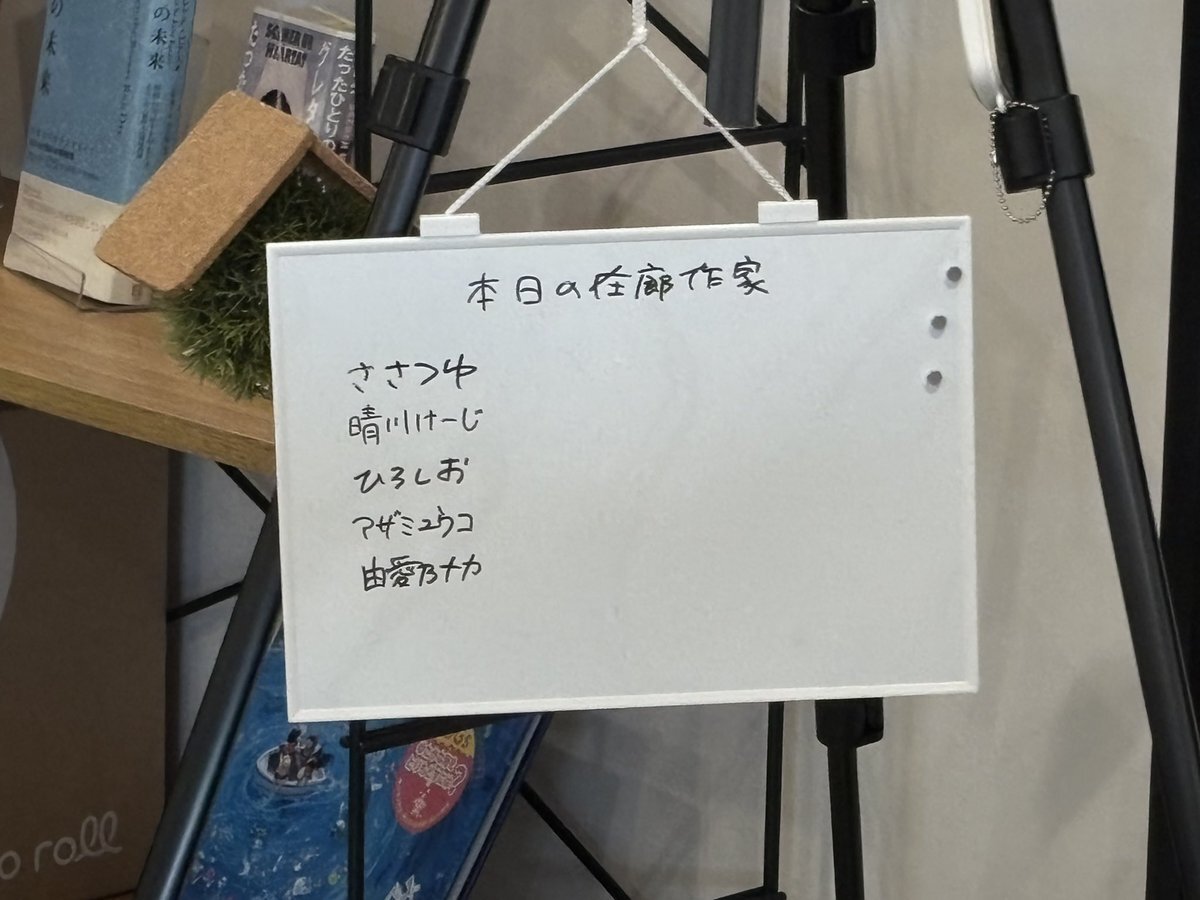 本日の在廊作家
ささつゆ
晴川けーじ
ひろしお
アザミユウコ
由愛乃ナカ
の未来
の未来
たったひとりの
グレタ
o roll